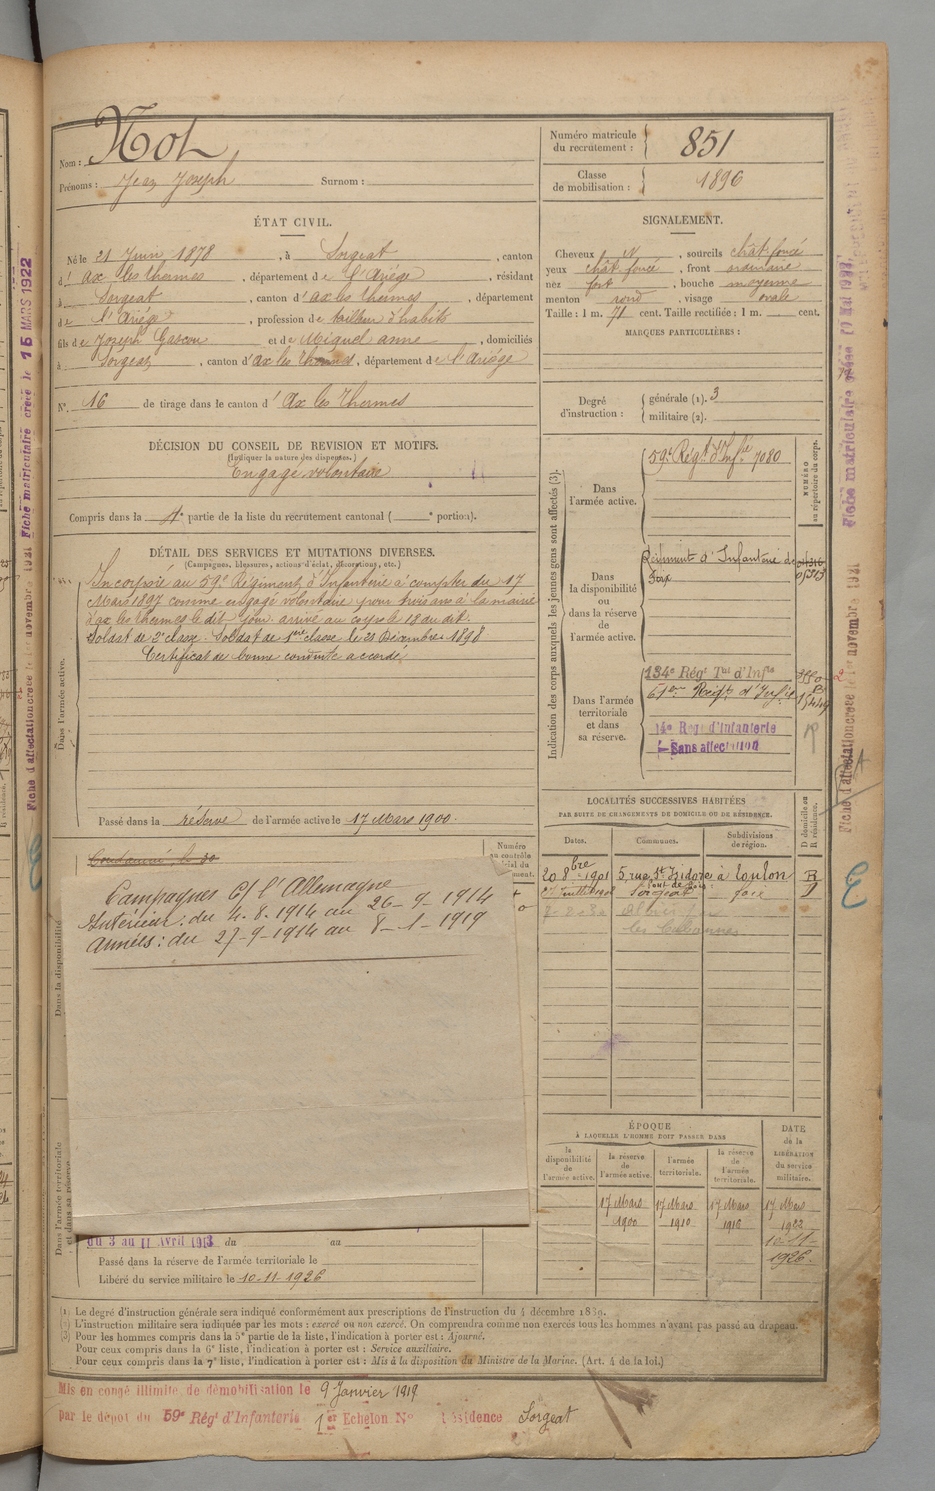 Nom : Not
Prénoms : Jean Joseph Surnom :
Numéro matricule du recrutement : 851
Classe de mobilisation : 1896
ÉTAT CIVIL.
Né le 21 Juin 1878, à Sorgeat, canton
d'ax les thermes, département de l'Ariège, résidant
à Sorgeat, canton d'ax les thermes, département
de l'Ariège, profession de tailleur d'habits
fils de Joseph Gascou et de Miquel anne, domiciliés
à Sorgeat, canton d'ax les thermes, département de l'Ariège
N° 16 de tirage dans le canton d'Ax les Thermes
SIGNALEMENT.
Cheveux N, sourcils chât foncé
yeux chât foncé, front ordinaire
nez fort, bouche moyenne
menton rond, visage ovale
Taille : 1 m. 71 cent. Taille rectifiée : 1 m. cent.
MARQUES PARTICULIÈRES :
Degré d'instruction : générale (1). 3
militaire (2).
DÉCISION DU CONSEIL DE REVISION ET MOTIFS.
(Indiquer la nature des dispenses.)
Engagé volontaire
Compris dans la 4e partie de la liste du recrutement cantonal ( e portion).
DÉTAIL DES SERVICES ET MUTATIONS DIVERSES.
(Campagnes, blessures, actions d'éclat, décorations, etc.)
Dans l'armée active.
Incorporé au 59e Régiment d'Infanterie à compter du 17
Mars 1897 comme engagé volontaire pour trois ans à la mairie
d'ax les thermes le dit jour. arrivé au corps le 18 du dit.
Soldat de 2e classe. Soldat de 1ere classe le 23 Décembre 1898
Certificat de bonne conduite accordé
Passé dans la réserve de l'armée active le 17 Mars 1900.
Indication des corps auxquels les jeunes gens sont affectés (3).
NUMÉRO au répertoire du corps.
Dans l'armée active.
59e Régt d'Infie 7080
Dans la disponibilité ou dans la réserve de l'armée active.
Régiment d'Infanterie de
Foix
Dans l'armée territoriale et dans sa réserve.
134e Régt Tal d'Infie
Régt d'Infie
14e Régt d'Infanterie
Sans affectation
LOCALITÉS SUCCESSIVES HABITÉES
PAR SUITE DE CHANGEMENTS DE DOMICILE OU DE RÉSIDENCE.
Dates. Communes. Subdivisions de région. D domicile ou R résidence.
20 8bre 1901 5, rue St Isidore à Toulon R
Sorgeat foix D
les Cabannes
Numéro
Condamné le 30
Campagnes C/ l'Allemagne
Intérieur : du 4-8-1914 au 26-9-1914
Armées : du 27-9-1914 au 8-1-1919
Dans la disponibilité
Dans l'armée territoriale et dans sa réserve
du 3 au 11 Avril 1913 du au
Passé dans la réserve de l'armée territoriale le
Libéré du service militaire le 10-11-1926
ÉPOQUE
À LAQUELLE L'HOMME DOIT PASSER DANS
la disponibilité de l'armée active.
la réserve de l'armée active.
l'armée territoriale.
la réserve de l'armée territoriale.
DATE de la LIBÉRATION du service militaire.
17 Mars 1900
17 Mars 1910
17 Mars 1916
17 Mars 1922
10-11-1926.
(1) Le degré d'instruction générale sera indiqué conformément aux prescriptions de l'instruction du 4 décembre 1889.
(2) L'instruction militaire sera indiquée par les mots : exercé ou non exercé. On comprendra comme non exercés tous les hommes n'ayant pas passé au drapeau.
(3) Pour les hommes compris dans la 5e partie de la liste, l'indication à porter est : Ajourné.
Pour ceux compris dans la 6e liste, l'indication à porter est : Service auxiliaire.
Pour ceux compris dans la 7e liste, l'indication à porter est : Mis à la disposition du Ministre de la Marine. (Art. 4 de la loi.)
Mis en congé illimité de démobilisation le 9 Janvier 1919
par le dépôt du 59e Régt d'Infanterie 1er Echelon N° Résidence Sorgeat
Fiche matriculaire créée le 15 MARS 1922
Fiche d'affectation créée le 1er novembre 1921
Fiche matriculaire créée
Fiche d'affectation créée le 1er novembre 1921